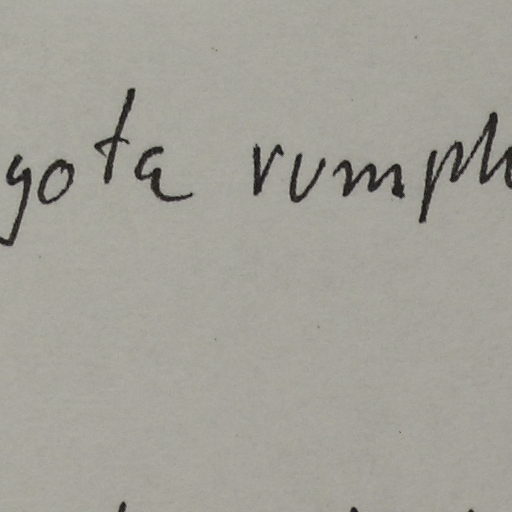 gota rumph